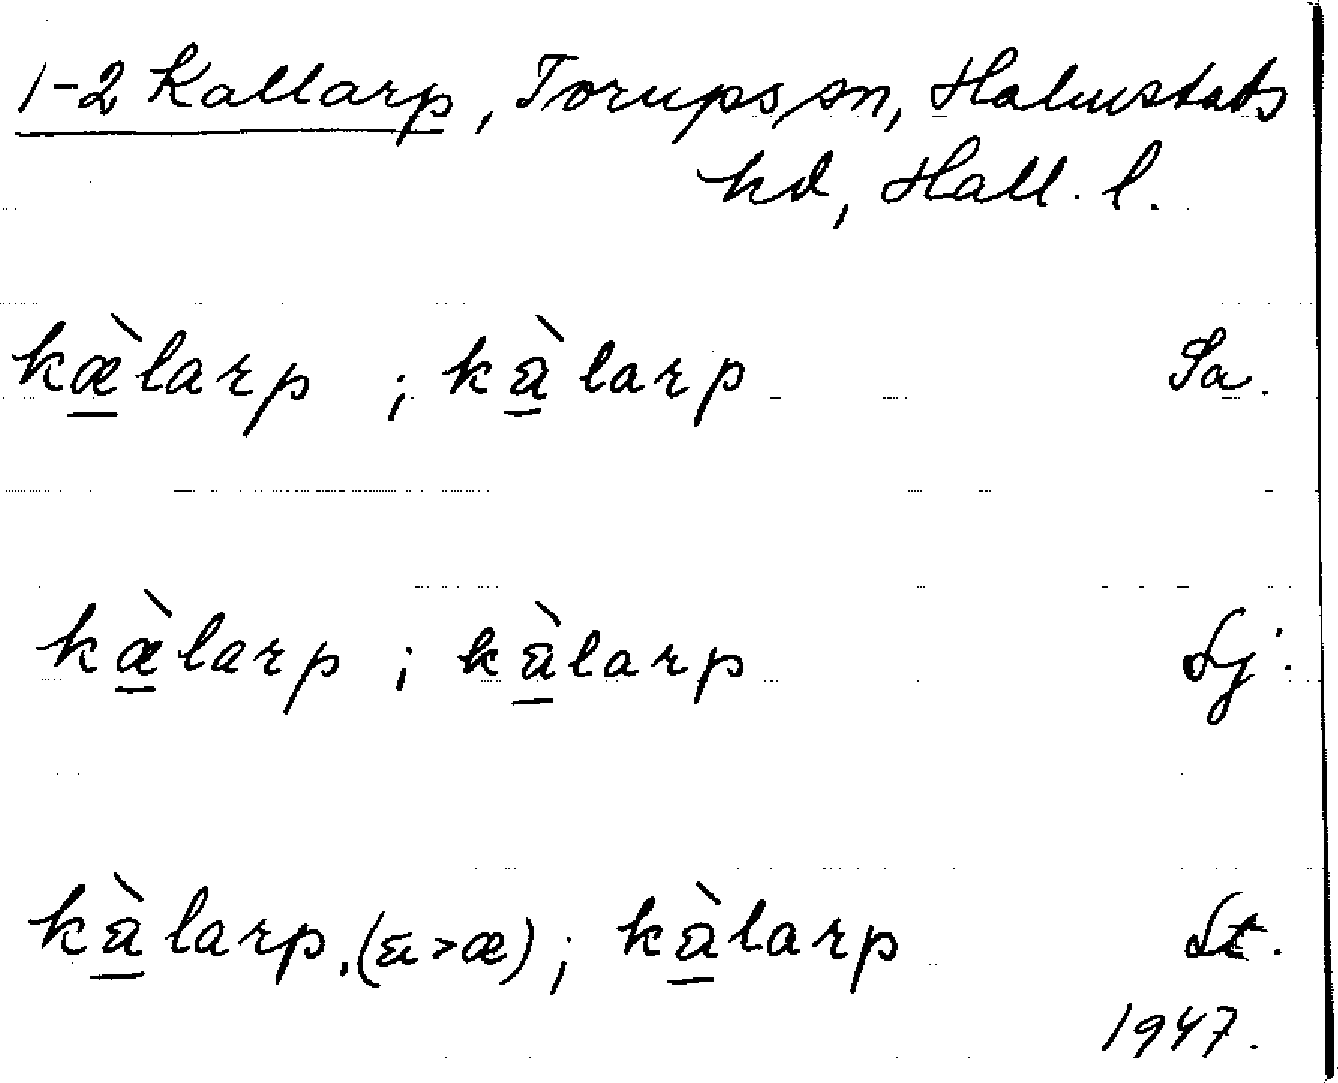 1-2 Kallarp, Torups sn, Halmstads
hd, Hall. l.
kæ̲̀larp ; kà̲larp Sa.
kæ̲̀larp ; kà̲larp Sj.
kà̲larp, (a>æ) ; kà̲larp St.
1947.